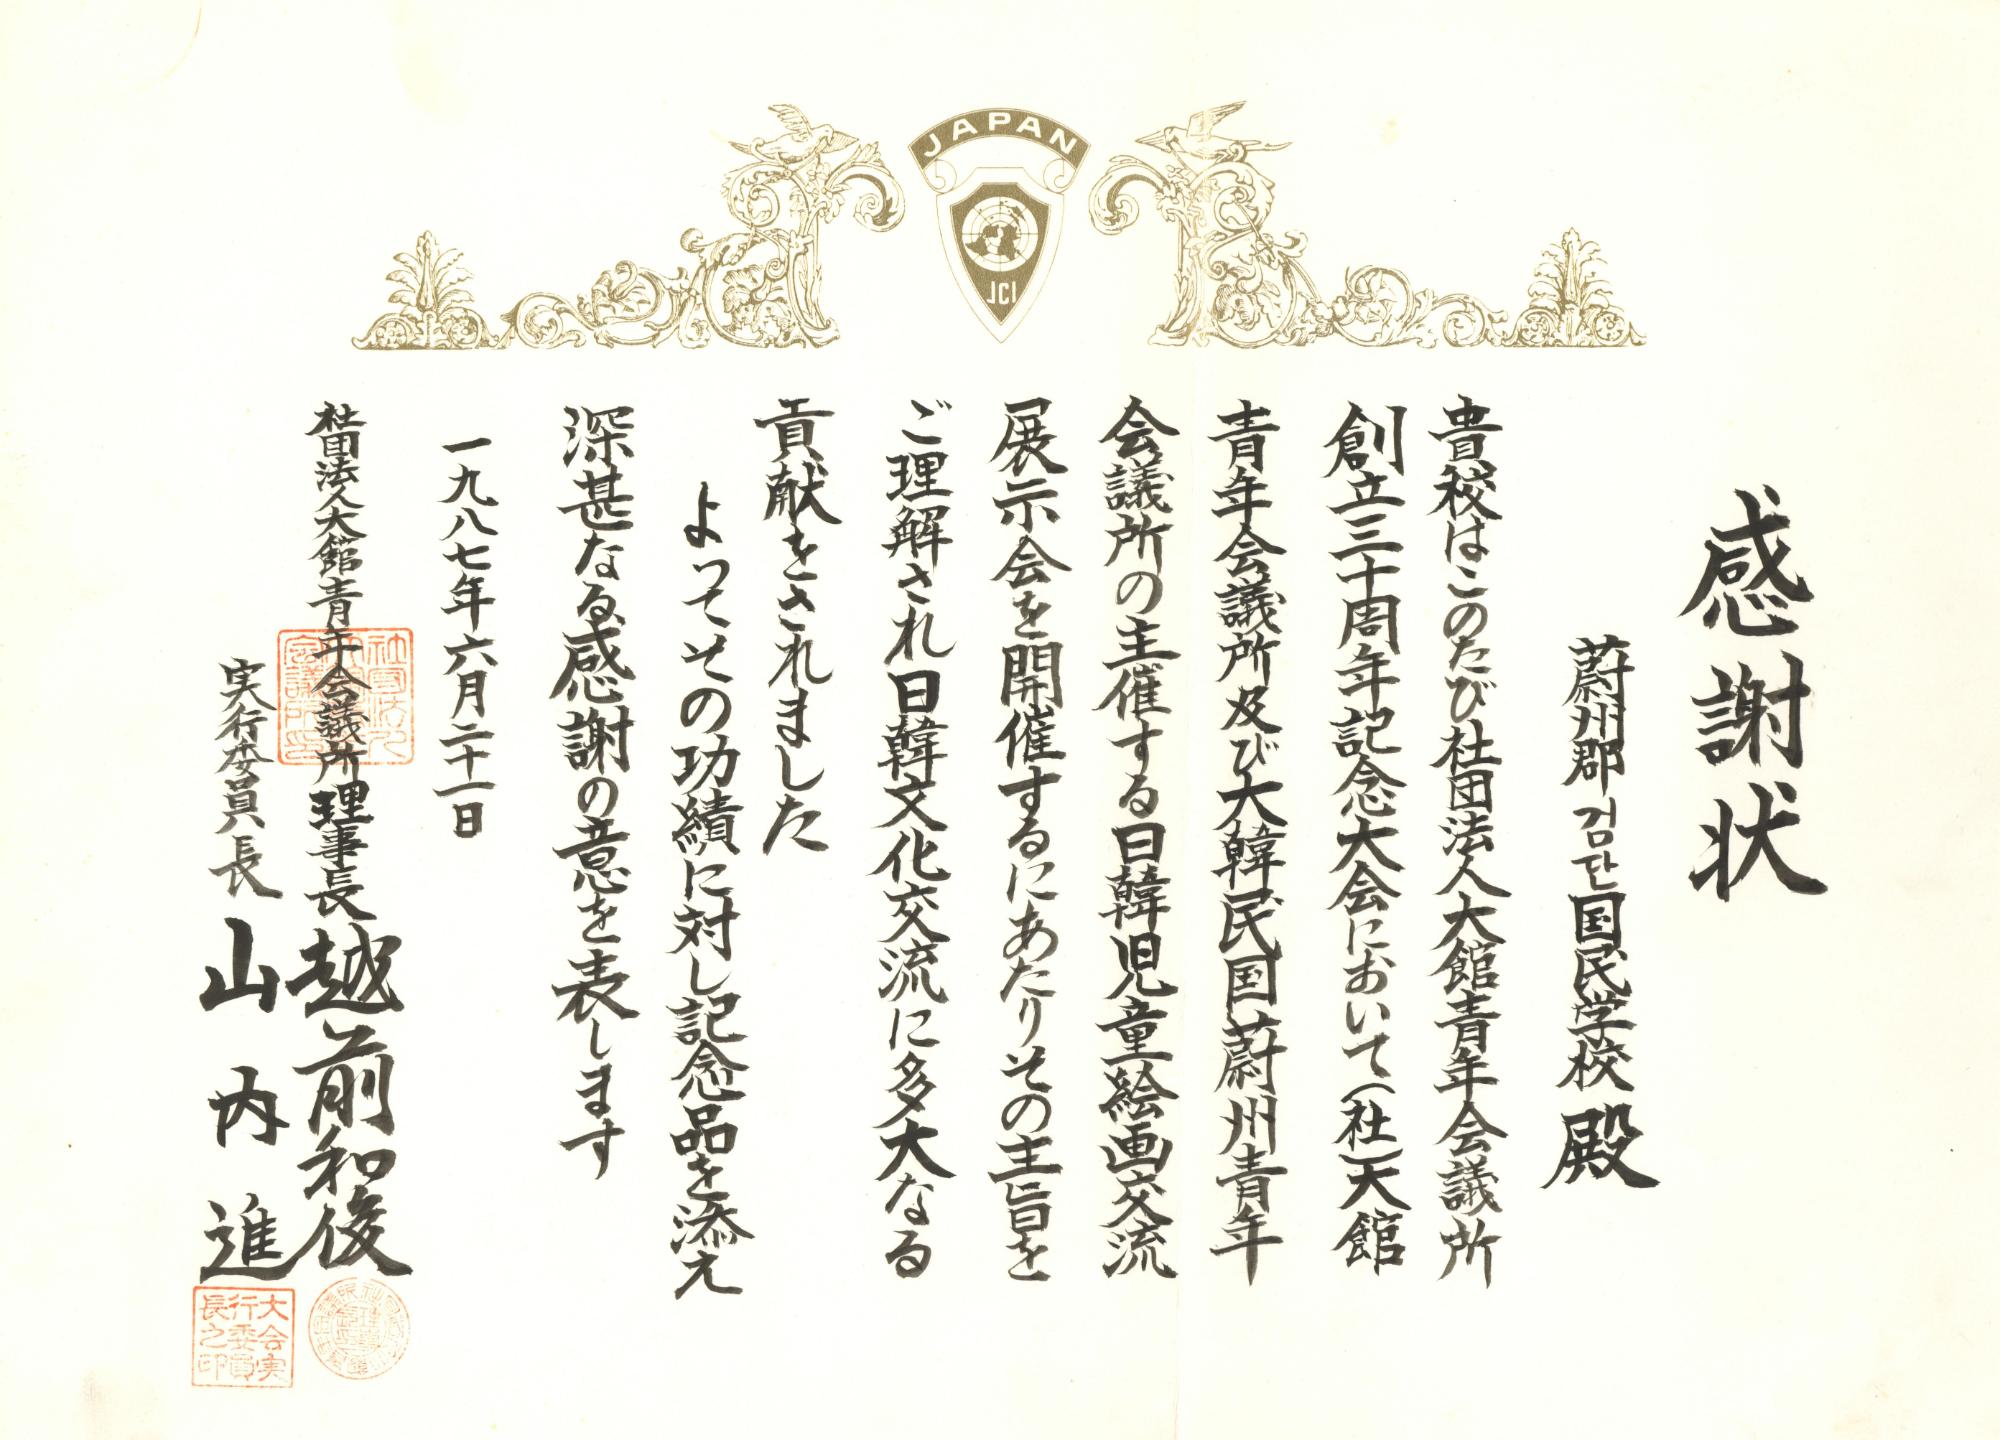 JAPAN
JCI
感謝状
蔚州郡 검단国民学校 殿
貴校はこのたび社団法人大館青年会議所
創立三十周年記念大会において(社)大館
青年会議所及び大韓民国蔚州青年
会議所の主催する日韓児童絵画交流
展示会を開催するにあたりその主旨を
ご理解され日韓文化交流に多大なる
貢献をされました
よってその功績に対し記念品を添え
深甚なる感謝の意を表します
一九八七年六月二十一日
社団法人大館青年会議所理事長 越前和俊
実行委員長 山内進
大会実
行委員
長之印